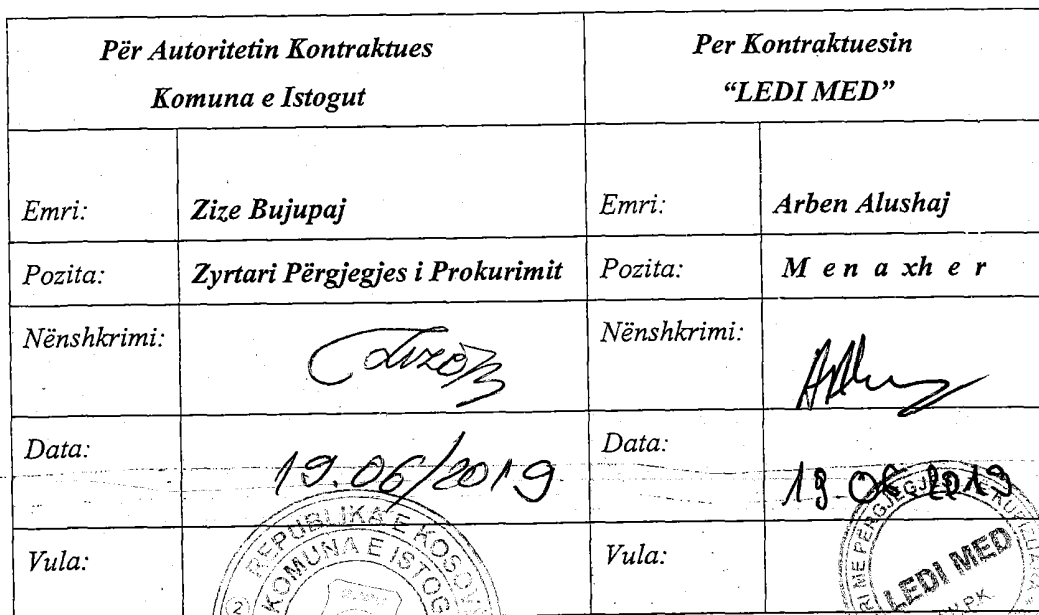 Për Autoritetin Kontraktues
Komuna e Istogut
Per Kontraktuesin
“LEDI MED”
Emri: Zize Bujupaj
Emri: Arben Alushaj
Pozita: Zyrtari Përgjegjes i Prokurimit
Pozita: M e n a xh e r
Nënshkrimi:
Nënshkrimi:
Data: 19.06/2019
Data: 19.06 2019
Vula:
REPUBLIKA E KOSOV
KOMUNA E ISTOG
2
Vula:
RI ME PËRGJEGJ
LEDI MED